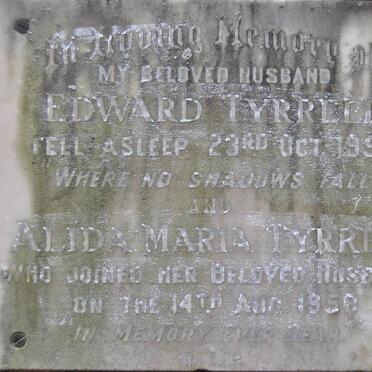 In Loving Memory
MY BELOVED HUSBAND
EDWARD TYRRELL
FELL ASLEEP 23RD OCT 19
"WHERE NO SHADOWS FALL
AND
ALIDA MARIA TYRRE
WHO JOINED HER BELOVED HUSB
ON THE 14TH AUG 1950
"IN MEMORY EVER DEAR
R.I.P.